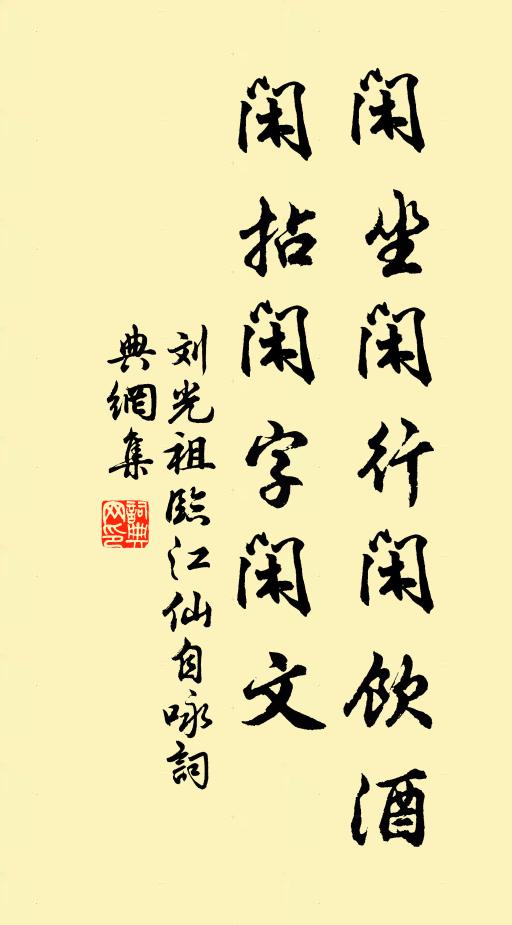 闲坐闲行闲饮酒
闲拈闲字闲文
刘光祖臨江仙自咏詞
典網集
詞典
网印